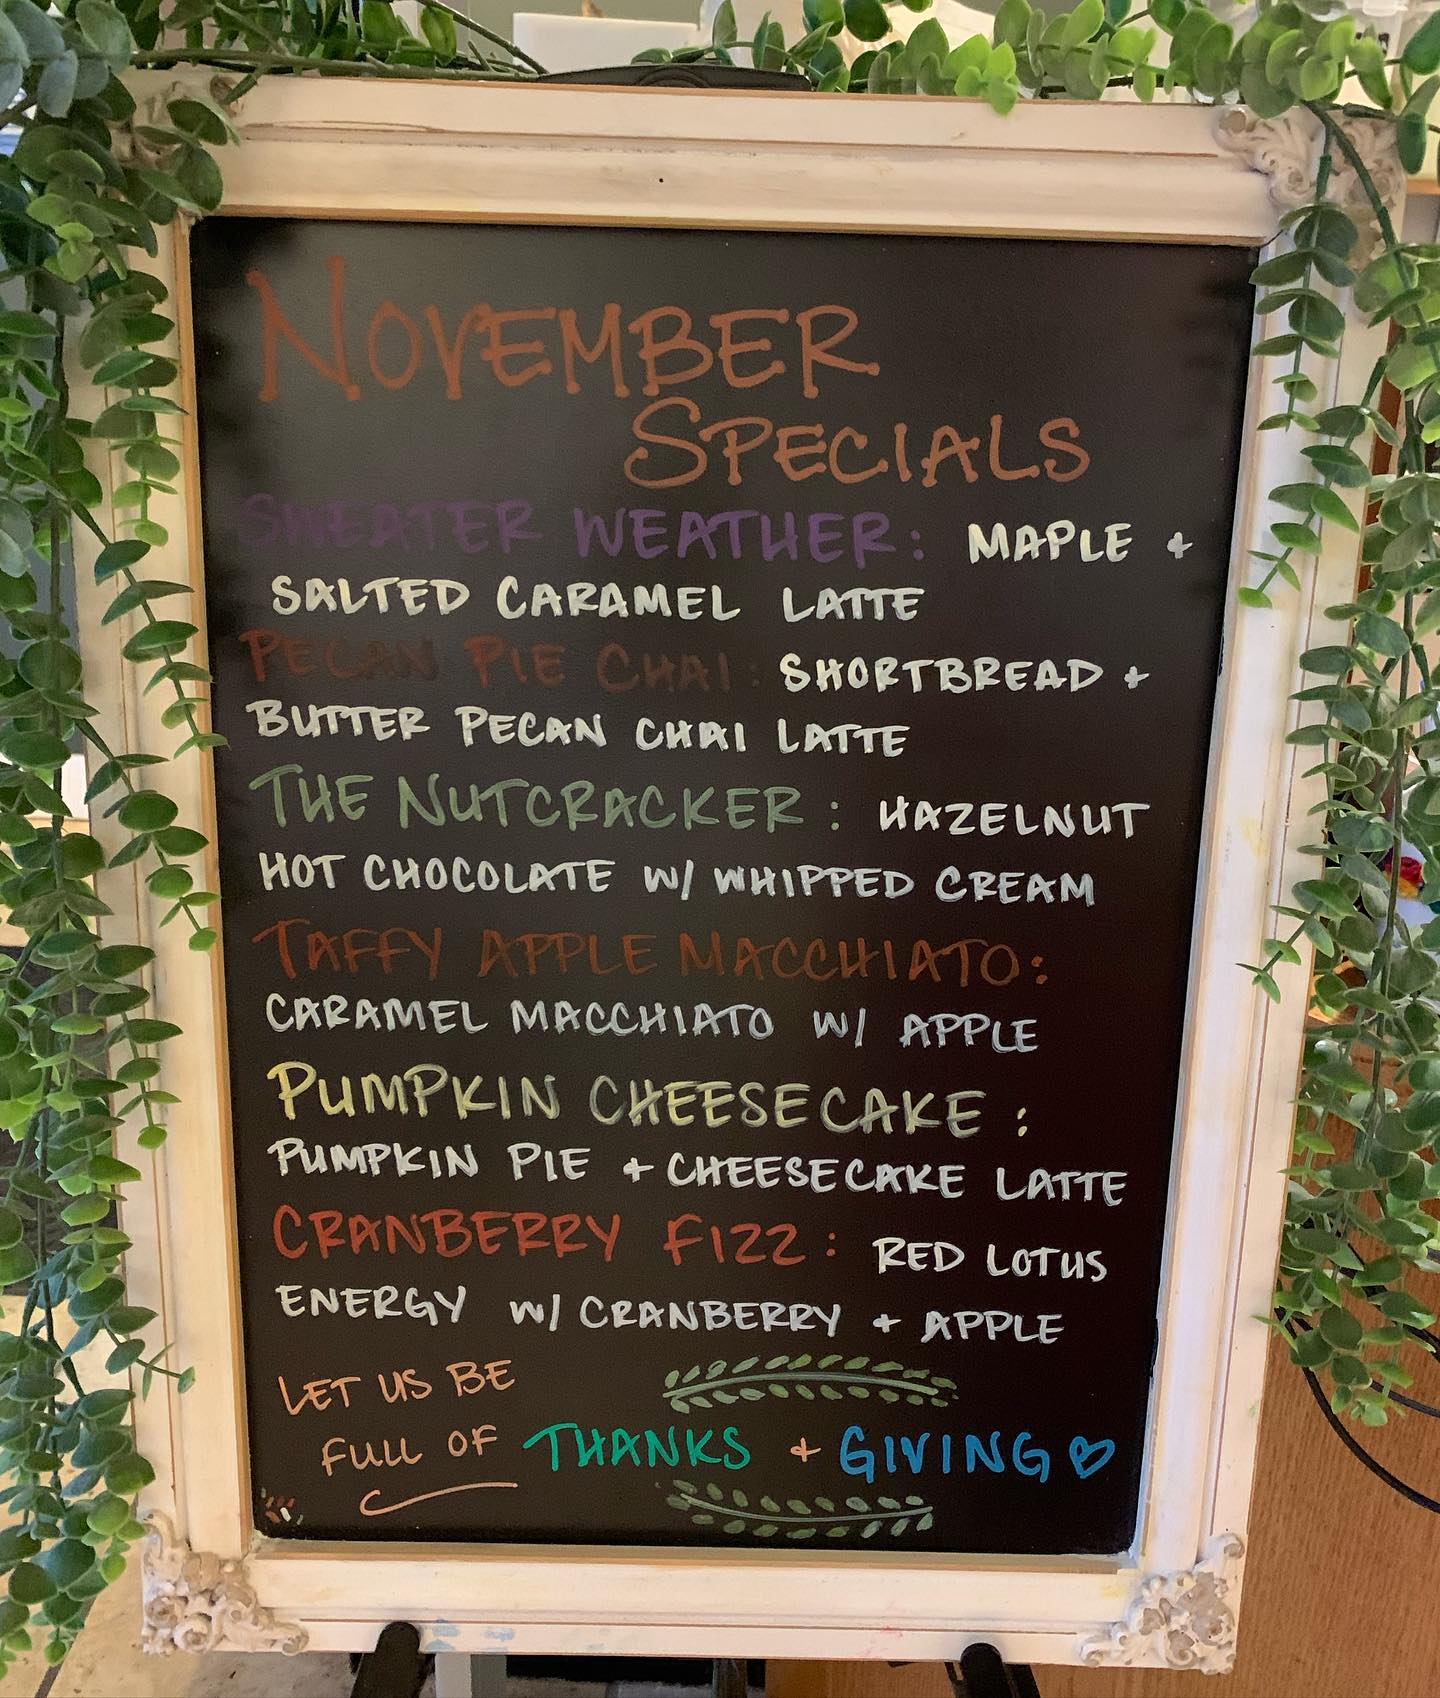 NOVEMBER
SPECIALS
SWEATER WEATHER: MAPLE +
SALTED CARAMEL LATTE
PECAN PIE CHAI: SHORTBREAD +
BUTTER PECAN CHAI LATTE
THE NUTCRACKER: HAZELNUT
HOT CHOCOLATE W/ WHIPPED CREAM
TAFFY APPLE MACCHIATO:
CARAMEL MACCHIATO W/ APPLE
PUMPKIN CHEESECAKE:
PUMPKIN PIE + CHEESECAKE LATTE
CRANBERRY FIZZ: RED LOTUS
ENERGY W/ CRANBERRY + APPLE
LET US BE
FULL OF THANKS + GIVING ♡